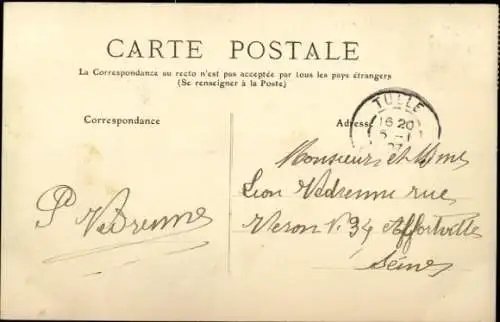 CARTE POSTALE
La Correspondance au recto n'est pas acceptée par tous les pays étrangers
(Se renseigner à la Poste)
Correspondance
Adresse
TULLE
16 20
5 - 1
07
Monsieur et Mme
Leon Vedrenne rue
Veron N. 34 Alfortville
Seine
P Vedrenne